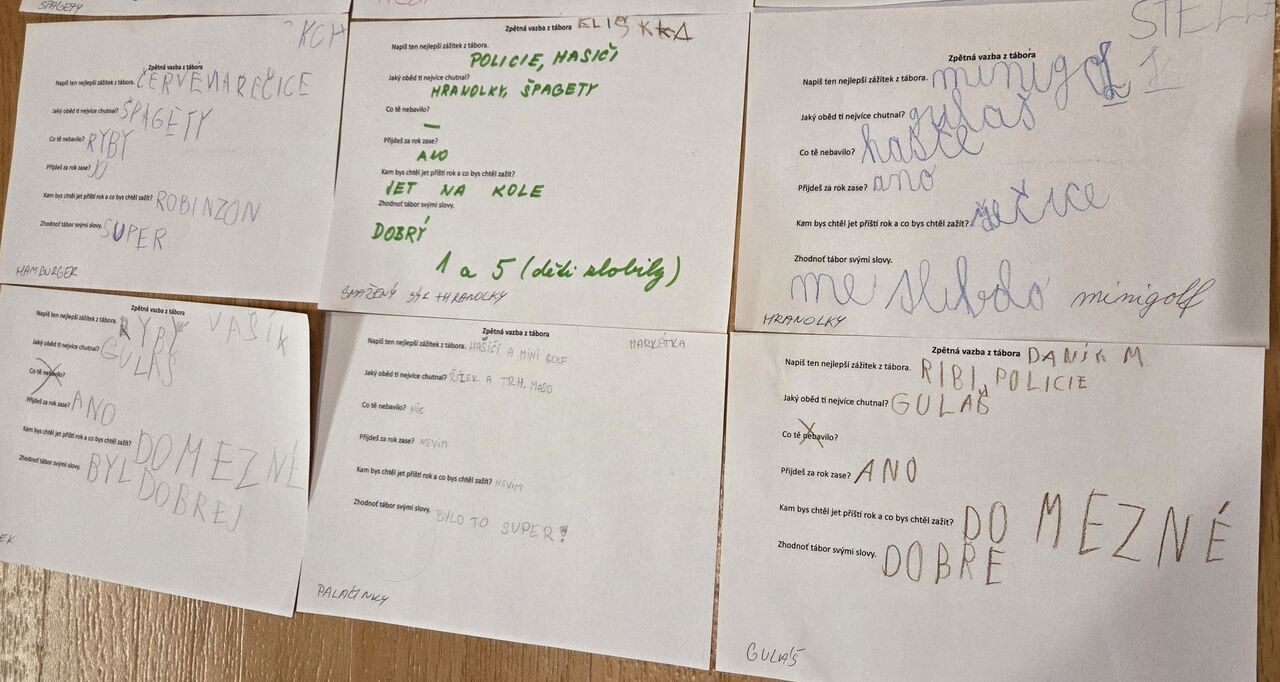 ŠPAGETY
KCH
Zpětná vazba z tábora
Napiš ten nejlepší zážitek z tábora. ČERVENAŘEČICE
Jaký oběd ti nejvíce chutnal? ŠPAGETY
Co tě nebavilo? RYBY
Přijdeš za rok zase? JO
Kam bys chtěl jet příští rok a co bys chtěl zažít? ROBINZON
Zhodnoť tábor svými slovy. SUPER
HAMBURGER
Zpětná vazba z tábora
Napiš ten nejlepší zážitek z tábora.
POLICIE, HASIČI
Jaký oběd ti nejvíce chutnal?
HRANOLKY, ŠPAGETY
Co tě nebavilo?
—
Přijdeš za rok zase?
ANO
Kam bys chtěl jet příští rok a co bys chtěl zažít?
JET NA KOLE
Zhodnoť tábor svými slovy.
DOBRÝ
1 a 5 (děti zlobily)
SMAŽENÝ SÝR + HRANOLKY
STELLA
Zpětná vazba z tábora
Napiš ten nejlepší zážitek z tábora. minigol
Jaký oběd ti nejvíce chutnal? gulaš
Co tě nebavilo?
Přijdeš za rok zase? ano
Kam bys chtěl jet příští rok a co bys chtěl zažít? řečice
Zhodnoť tábor svými slovy.
minigolf
HRANOLKY
Zpětná vazba z tábora
VAŠÍK
Napiš ten nejlepší zážitek z tábora. RYBY
Jaký oběd ti nejvíce chutnal? GULAŠ
Co tě nebavilo?
Přijdeš za rok zase? ANO
Kam bys chtěl jet příští rok a co bys chtěl zažít? DO MEZNÉ
Zhodnoť tábor svými slovy. BYL DOBREJ
EK
Zpětná vazba z tábora
MARKÉTKA
Napiš ten nejlepší zážitek z tábora. HASIČI A MINI GOLF
Jaký oběd ti nejvíce chutnal? ŘÍZEK A TRH. MASO
Co tě nebavilo? NIC
Přijdeš za rok zase? NEVIM
Kam bys chtěl jet příští rok a co bys chtěl zažít? NEVIM
Zhodnoť tábor svými slovy. BYLO TO SUPER!
PALAČINKY
Zpětná vazba z tábora DANÍK M
Napiš ten nejlepší zážitek z tábora. RIBI, POLICIE
Jaký oběd ti nejvíce chutnal? GULAŠ
Co tě nebavilo?
Přijdeš za rok zase? ANO
Kam bys chtěl jet příští rok a co bys chtěl zažít? DO MEZNÉ
Zhodnoť tábor svými slovy. DOBRE
GULÁŠ